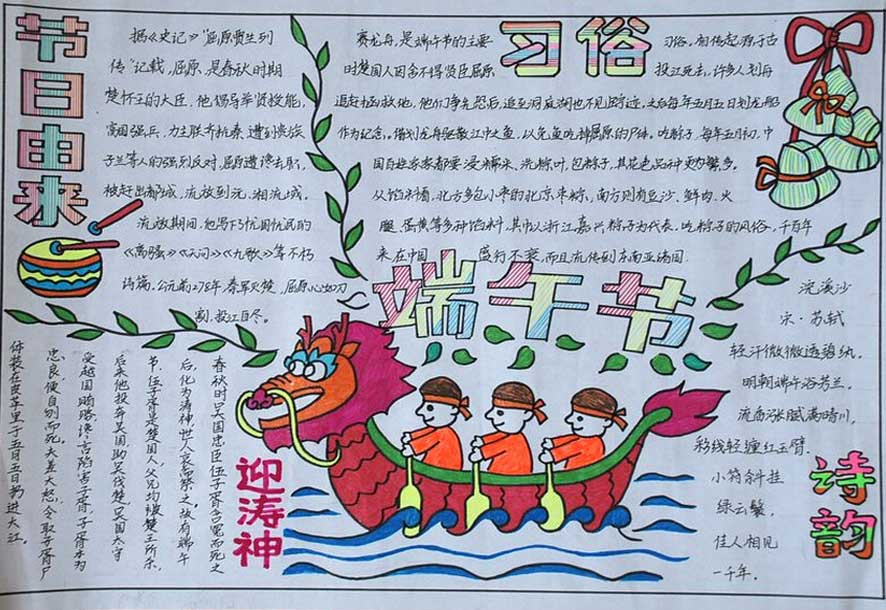 节日由来
据《史记》“屈原贾生列
传”记载，屈原，是春秋时期
楚怀王的大臣。他倡导举贤授能，
富国强兵，力主联齐抗秦，遭到贵族
子兰等人的强烈反对，屈原遭谗去职，
被赶出都城，流放到沅、湘流域。
流放期间，他写下了忧国忧民的
《离骚》《天问》《九歌》等不朽
诗篇。公元前278年，秦军灭楚，屈原心如刀
割，投江自尽。
习俗
赛龙舟，是端午节的主要 习俗。相传起源于古
时楚国人因舍不得贤臣屈原 投江死去，许多人划舟
追赶拯救他。他们争先恐后，追至洞庭湖也不见踪迹，之后每年五月五日划龙船
作为纪念。借划龙舟驱散江中之鱼，以免鱼吃掉屈原的尸体。吃粽子，每年五月初，中
国百姓家家都要浸糯米、洗粽叶、包粽子，其花色品种更为繁多。
从馅料看，北方多包小枣的北京枣粽，南方则有豆沙、鲜肉、火
腿、蛋黄等多种馅料，其中以浙江嘉兴粽子为代表。吃粽子的风俗，千百年
来在中国 盛行不衰，而且流传到东南亚诸国。
端午节
浣溪沙
宋·苏轼
轻汗微微透碧纨，
明朝端午浴芳兰。
流香涨腻满晴川。
彩线轻缠红玉臂，
小符斜挂
绿云鬟。
佳人相见
一千年。
诗韵
迎涛神
春秋时吴国忠臣伍子胥含冤而死之
后，化为涛神，世人哀而祭之，故有端午
节。伍子胥是楚国人，父兄均被楚王所杀，
后来他投奔吴国，助吴伐楚。吴国太守
受越国贿赂，谗言陷害子胥，子胥本为
忠良，便自刎而死，夫差大怒，令取子胥尸
体装在皮革里于五月五日 进大江。